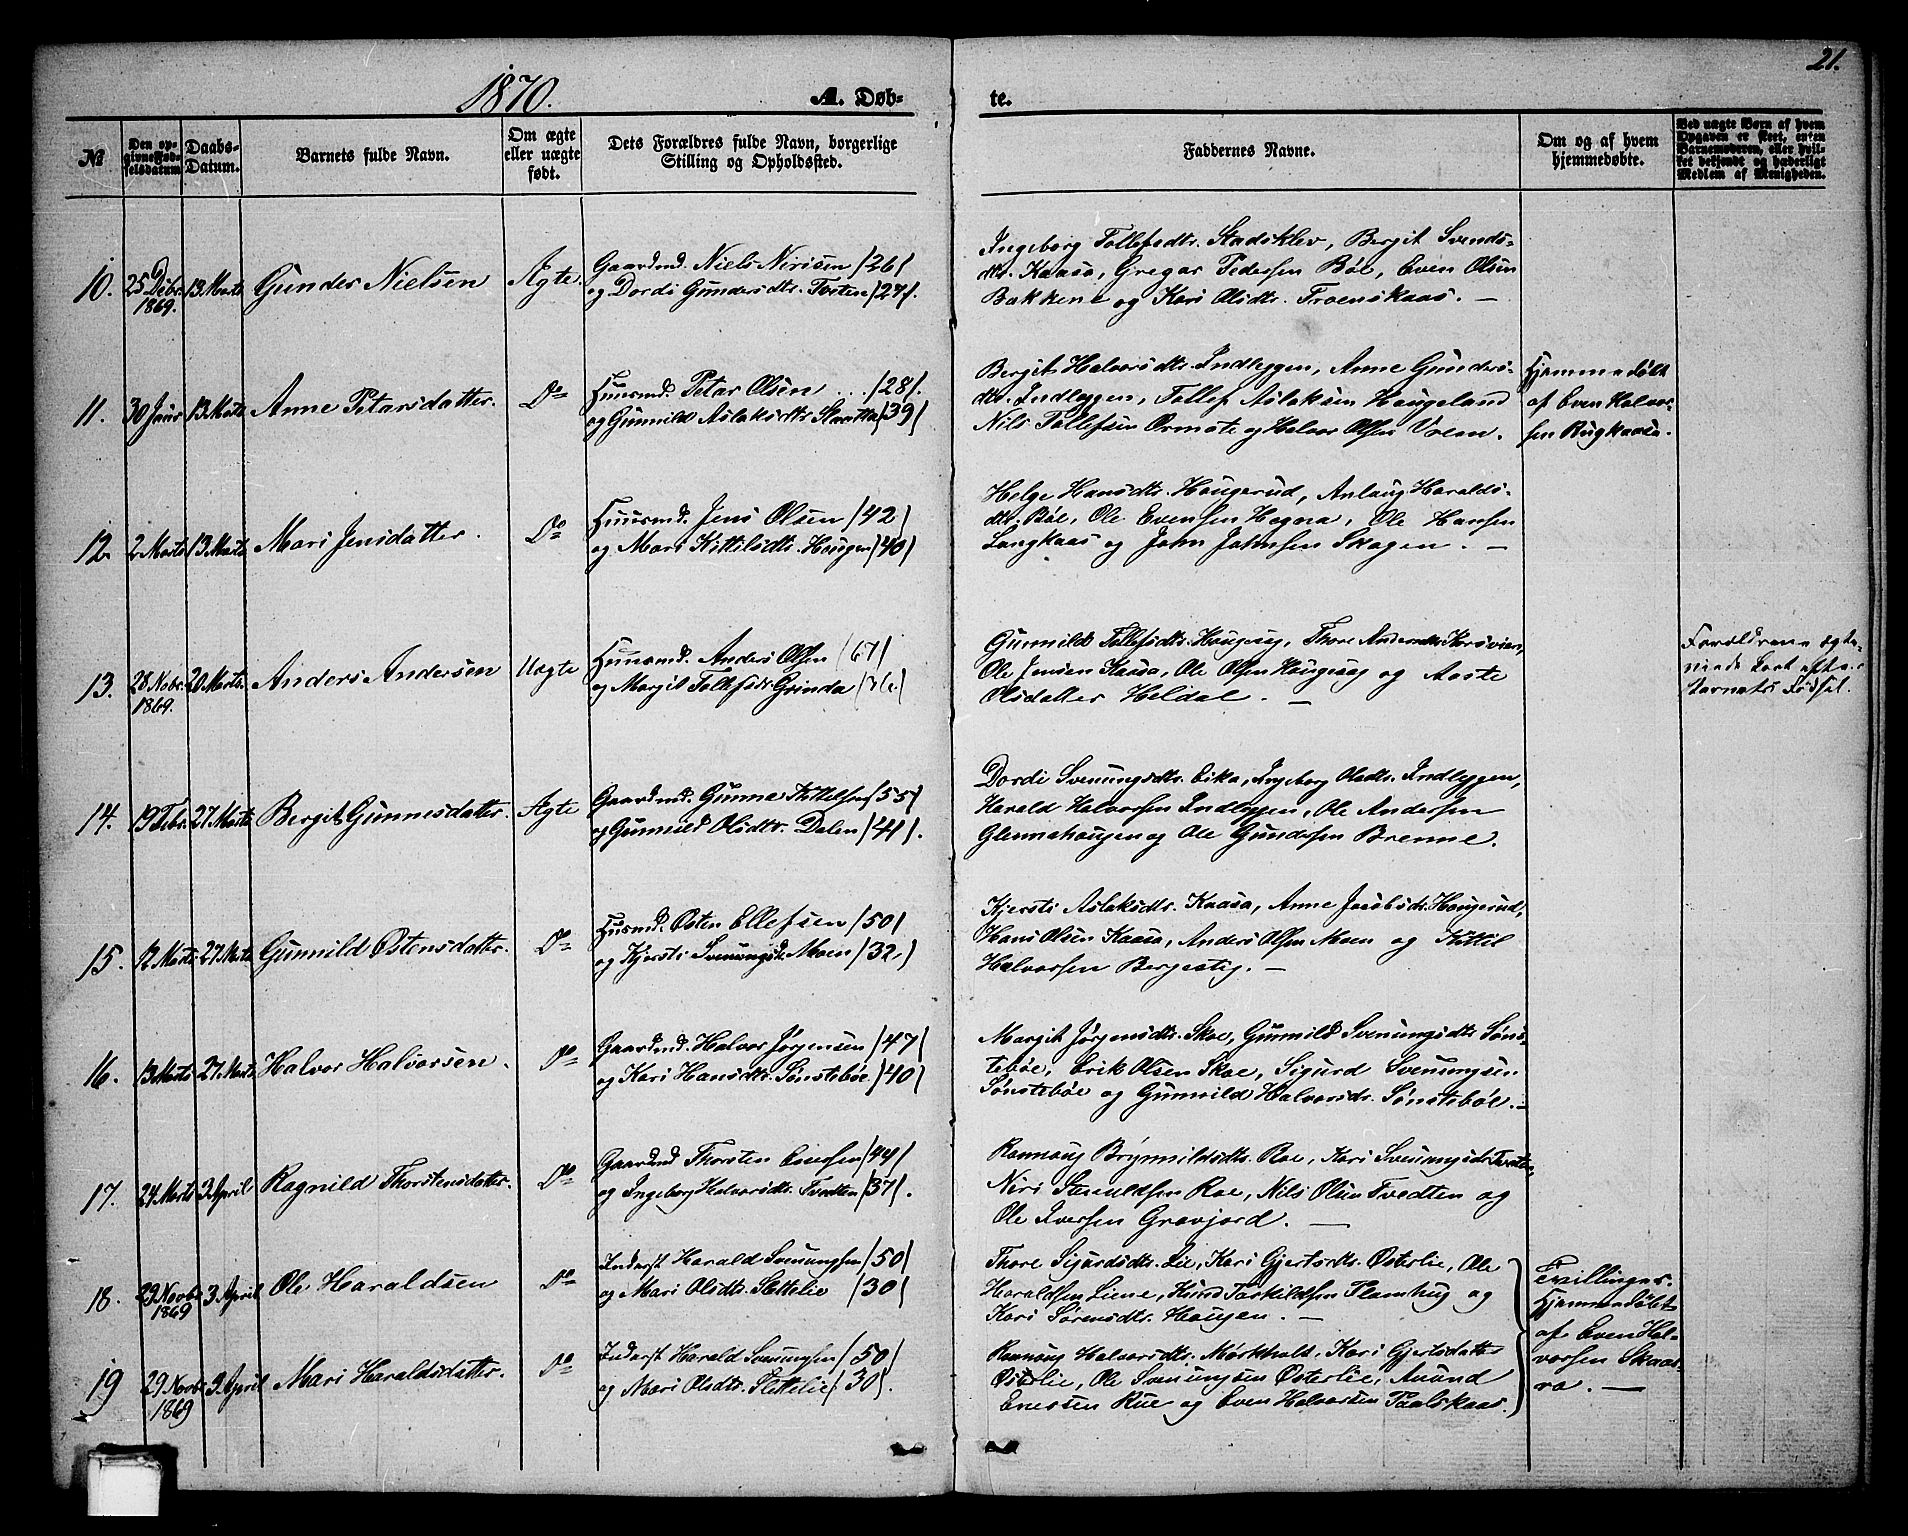 21.
1870.
A. Døb-
te.
№
Den op-
givne Fød-
selsdatum
Daabs-
Datum.
Barnets fulde Navn.
Om ægte
eller uægte
født.
Dets Forældres fulde Navn, borgerlige
Stilling og Opholdssted.
Faddernes Navne.
Om og af hvem
hjemmedøbte.
Ved uægte Børn af hvem
Opgaven er skeet, enten
Barnemoderen, eller hvil-
ket bekjendt og hæderligt
Medlem af Menigheden.
10.
25 Dcbr.
1869.
13 Marts
Gunder Nielsen
Ægte.
Gaardmd. Niels Nirisen /26/
og Dordi Gundersdtr. Tveten /27/.
Ingeborg Tollefsdtr. Stadsklev, Bergit Svends-
dtr. Kaasa, Gregar Pedersen Bøe, Even Olsen
Bakkene og Kari Olsdtr. Troenskaas. —
11.
30 Janr
13 Marts
Anne Petersdatter.
Do
Huusmd. Peter Olsen /28/.
og Gunnild Aslaksdtr. /39/
Bergit Halvorsdtr. Indlæggen, Anne Gunders-
dtr. Indlæggen, Tollef Aslaksen Haugeland
Nils Tollefsen Ormote og Halvor Olsen Vreim.
Hjemmedøbt
af Even Halvor-
sen Rugkaasa.
12.
2 Marts
13 Marts
Mari Jensdatter.
Do
Huusmd. Jens Olsen /42/
og Mari Kittilsdtr. Haugen /40/
Helge Hansdtr. Haugerud, Anlaug Haralds-
dtr. Bøe, Ole Evensen Hogna, Ole Hansen
Langkaas og John Johnsen Skogen. —
13.
28 Nobr.
1869.
20 Marts.
Anders Andersen
Uægte
Huusmd. Anders Olsen /67/
og Margit Tollefsdr. Grinda /36/
Gunnild Tollefsdtr. Haugesag, Thore Andersdtr.
Ole Jensen Kaasa, Ole Olsen Haugesag og Aaste
Olsdatter Heldal. —
Forældrene ægte-
viede kort efter
Barnets Fødsel.
14.
19 Febr.
27 Marts
Bergit Gunnesdatter.
Ægte
Gaardmd. Gunne Kittelsen /55/
og Gunnild Olsdtr. Dalen /41/.
Dordi Svenungsdtr. Eika, Ingeborg Olsdtr. Indlæggen,
Harald Halvorsen Indlæggen, Ole Andersen
Glennehaugen og Ole Gundersen Brenne.
15.
12 Marts
27 Marts
Gunnild Østensdatter.
Do
Husmd. Østen Ellefsen /50/
og Kjersti Svenungsd. Moen /32/
Kjersti Aslaksdtr. Kaasa, Anne Jacobsdr. Haugerud,
Hans Olsen Kaasa, Anders Olsen Moen og Kittil
Halvorsen Bergestig. —
16.
13 Marts
27 Marts.
Halvor Halvorsen.
Do
Gaardmd. Halvor Jørgensen /47/
og Kari Hansdtr. Sønstebøe /40/
Margit Jørgensdtr. Skoe, Gunnild Svenungsdtr. Søns-
tebøe, Erik Olsen Skoe, Sigurd Svenungsen
Sønstebøe og Gunnild Halvorsdr. Sønstebøe. —
17.
24 Marts
3 April
Ragnild Thorstensdatter.
Do
Gaardmd Thorsten Evensen /44/
og Ingeborg Halvorsdtr. Tvedten /37/.
Rannaug Brynnildsdtr. Roe, Kari Svenungsdr. Tveten,
Niri Roe, Nils Olsen Tvedten og
Ole Iversen Gravjord. —
18.
29 Novbr
1869
3 April
Ole Haraldsen
Do
Inderst Harald Svenungsen /50/
og Mari Olsdtr. Slettelie /30/
Thore Sigurdsdtr. Lie, Kari Gjertsdtr. Østerlie, Ole
Haraldsen Liene, Knud Torkildsen Flomhug og
Kari Sørensdtr. Haugen. —
Tvillinger.
Hjemmedøbt
af Even Hal-
vorsen Skaas-
ra. —
19
29 Novbr
1869
3 April
Mari Haraldsdatter.
Do
Inderst Harald Svenungsen /50/
og Mari Olsdtr. Slettelie /30/.
Rannaug Halvorsdtr. Mørkhold, Kari Gjertsdatter
Østerlie, Ole Svenungsen Østerlie, Amund
Enersen Rue og Even Halvorsen Taalskaas.